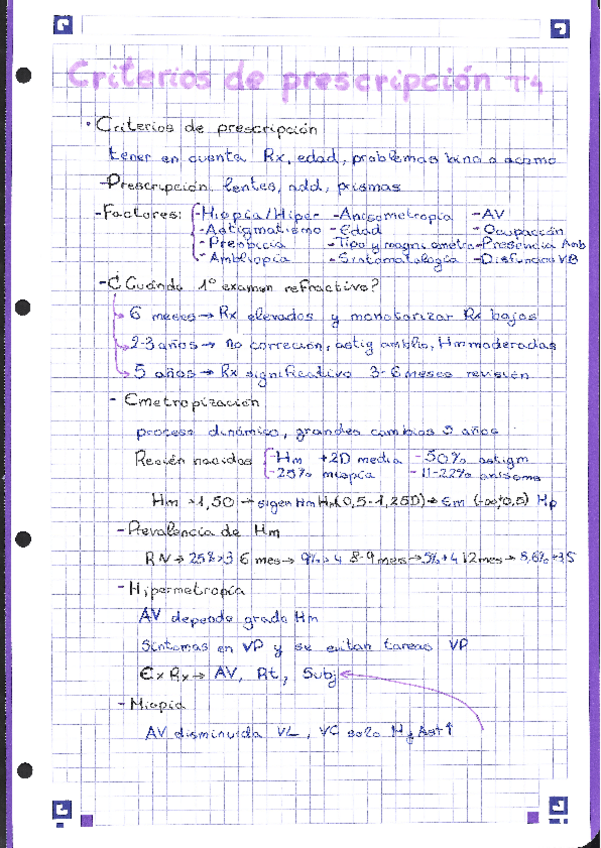 Criterios de prescripción T4
· Criterios de prescripción
tener en cuenta Rx, edad, problemas bino o acomo
- Prescripción lentes, add, prismas
- Factores: - Miopía/Hiper - Anisometropía - AV
- Astigmatismo - Edad - Ocupación
- Presbicia - Tipo y magni ametro - Presencia Amb
- Ambliopía - Sintomatología - Disfunción VB
- ¿Cuándo 1º examen refractivo?
6 meses → Rx elevados y monotorizar Rx bajos
2-3 años → no correción, astig amblio, Hm moderadas
5 años → Rx significativo 3-6 meses revisión
- Emetropización
proceso dinámico, grandes cambios años
Recién nacidos - Hm +2D media - 50% astigm
- 25% miopía - 11-22% anisome
Hm >1,50 → sigen Hm Hm(0,5-1,25D) → Em Mp
- Prevalencia de Hm
RN → 25% >3 6 mes → 9% >4 8-9 mes → 5% +4 12 mes → 3,6% +3,5
- Hipermetropía
AV depende grado Hm
Síntomas en VP y se evitan tareas VP
Ex Rx → AV, Rt, Subj
- Miopía
AV disminuida VL, VC solo Ast↑